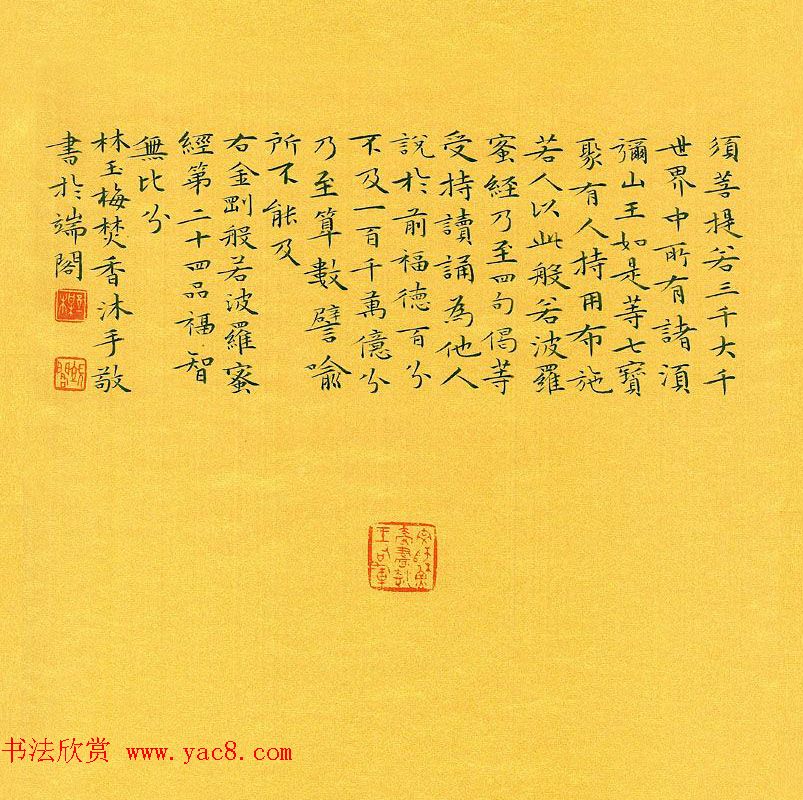 須菩提若三千大千
世界中所有諸須
彌山王如是等七寶
聚有人持用布施
若人以此般若波羅
蜜經乃至四句偈等
受持讀誦為他人
說於前福德百分
不及一百千萬億分
乃至算數譬喻
所不能及
右金剛般若波羅蜜
經第二十四品福智
無比分
林玉梅焚香沐手敬
書於端閣
书法欣赏 www.yac8.com